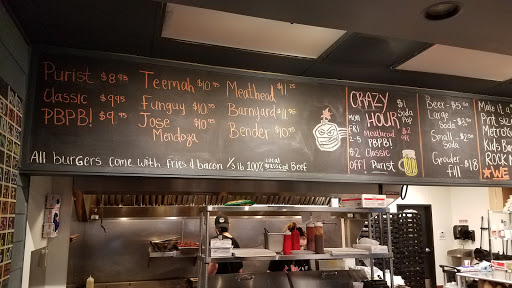 Purist $8.95
Classic $9.95
PBPB! $9.95
Teemah $10.95
Funguy $10.95
Jose $10.95
Mendoza
Meathead $11.25
Barnyard $11.95
Bender $10.95
All burgers come with fries & bacon 1/3 lb 100% Local Grassfed Beef
CRAZY
HOUR
MON
FRI
2-5
$2
OFF!
Meathead
PBPB!
Classic
Purist
$1
Soda
Pop
Beer-$5.50
Large
Soda $3
Small
Soda $2
Growler
fill $18
Make it a
Pint size
Metro
Kids
ROCK
★WE